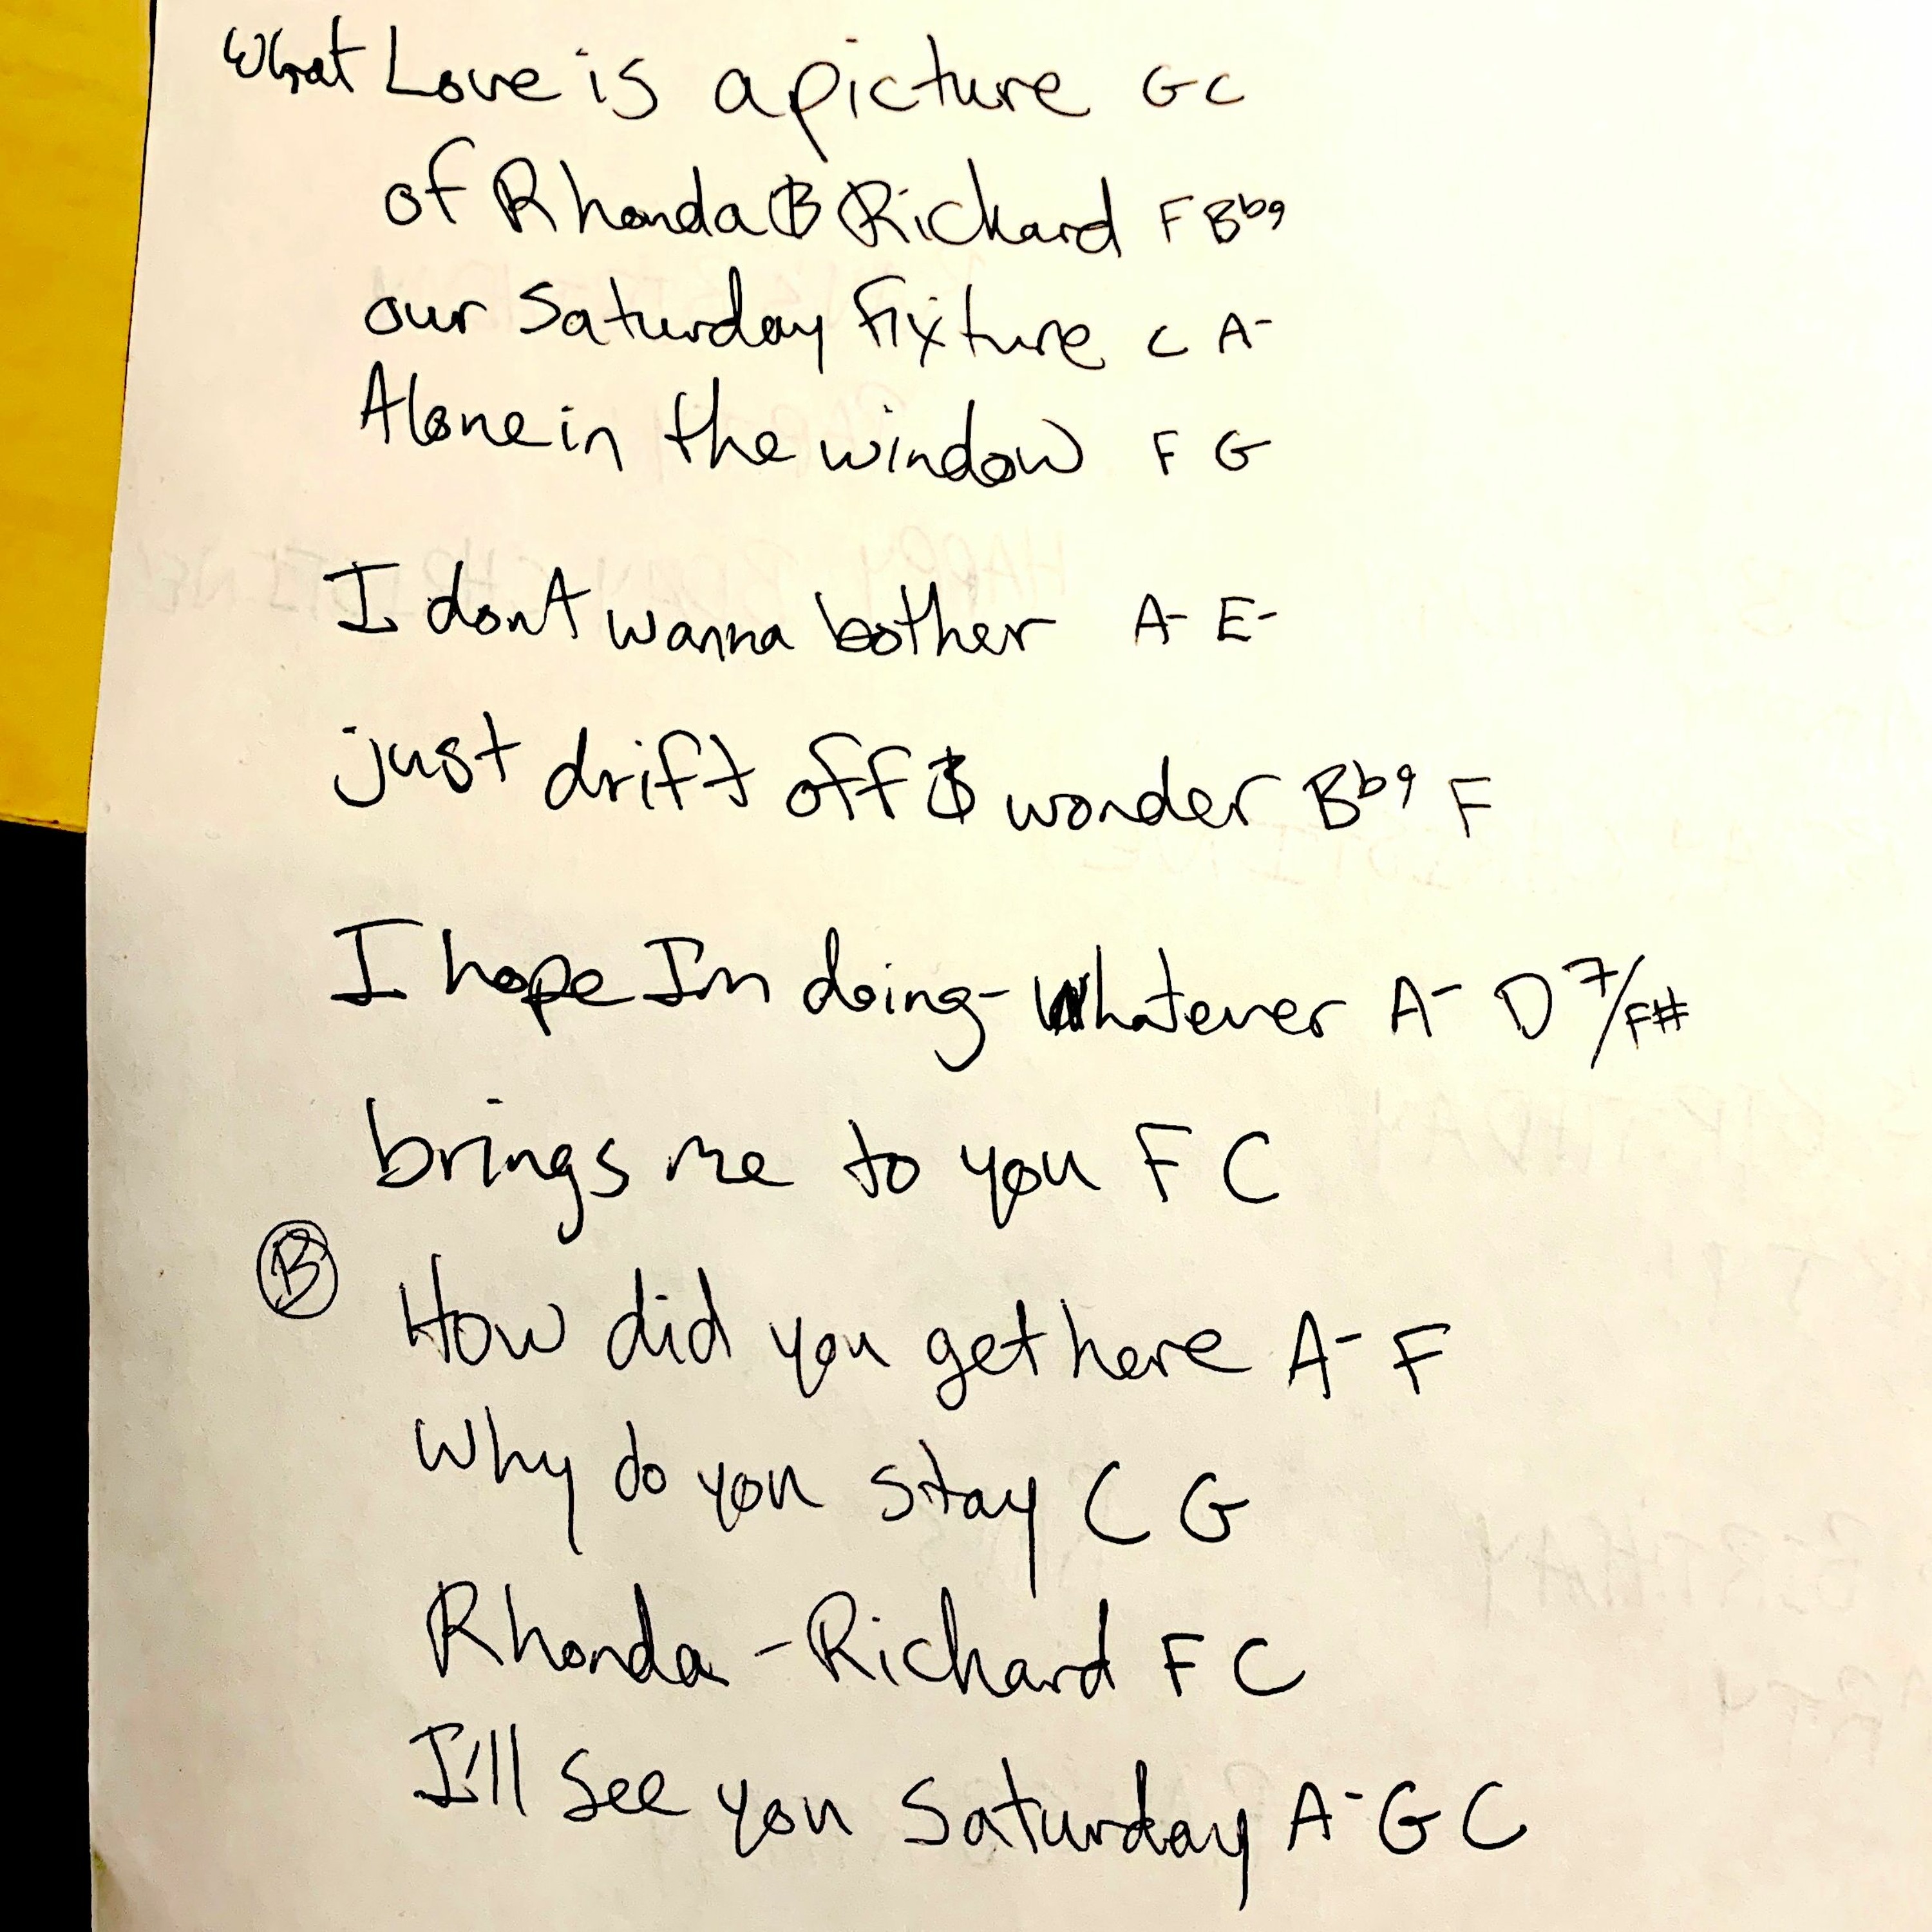 What Love is a picture G C
of Rhonda & Richard F Bb9
our Saturday fixture C A-
Alone in the window F G
I dont wanna bother A- E-
just drift off & wonder Bb9 F
I hope Im doing - whatever A- D7/F#
brings me to you F C
B
How did you get here A- F
Why do you stay C G
Rhonda - Richard F C
I'll see you Saturday A- G C